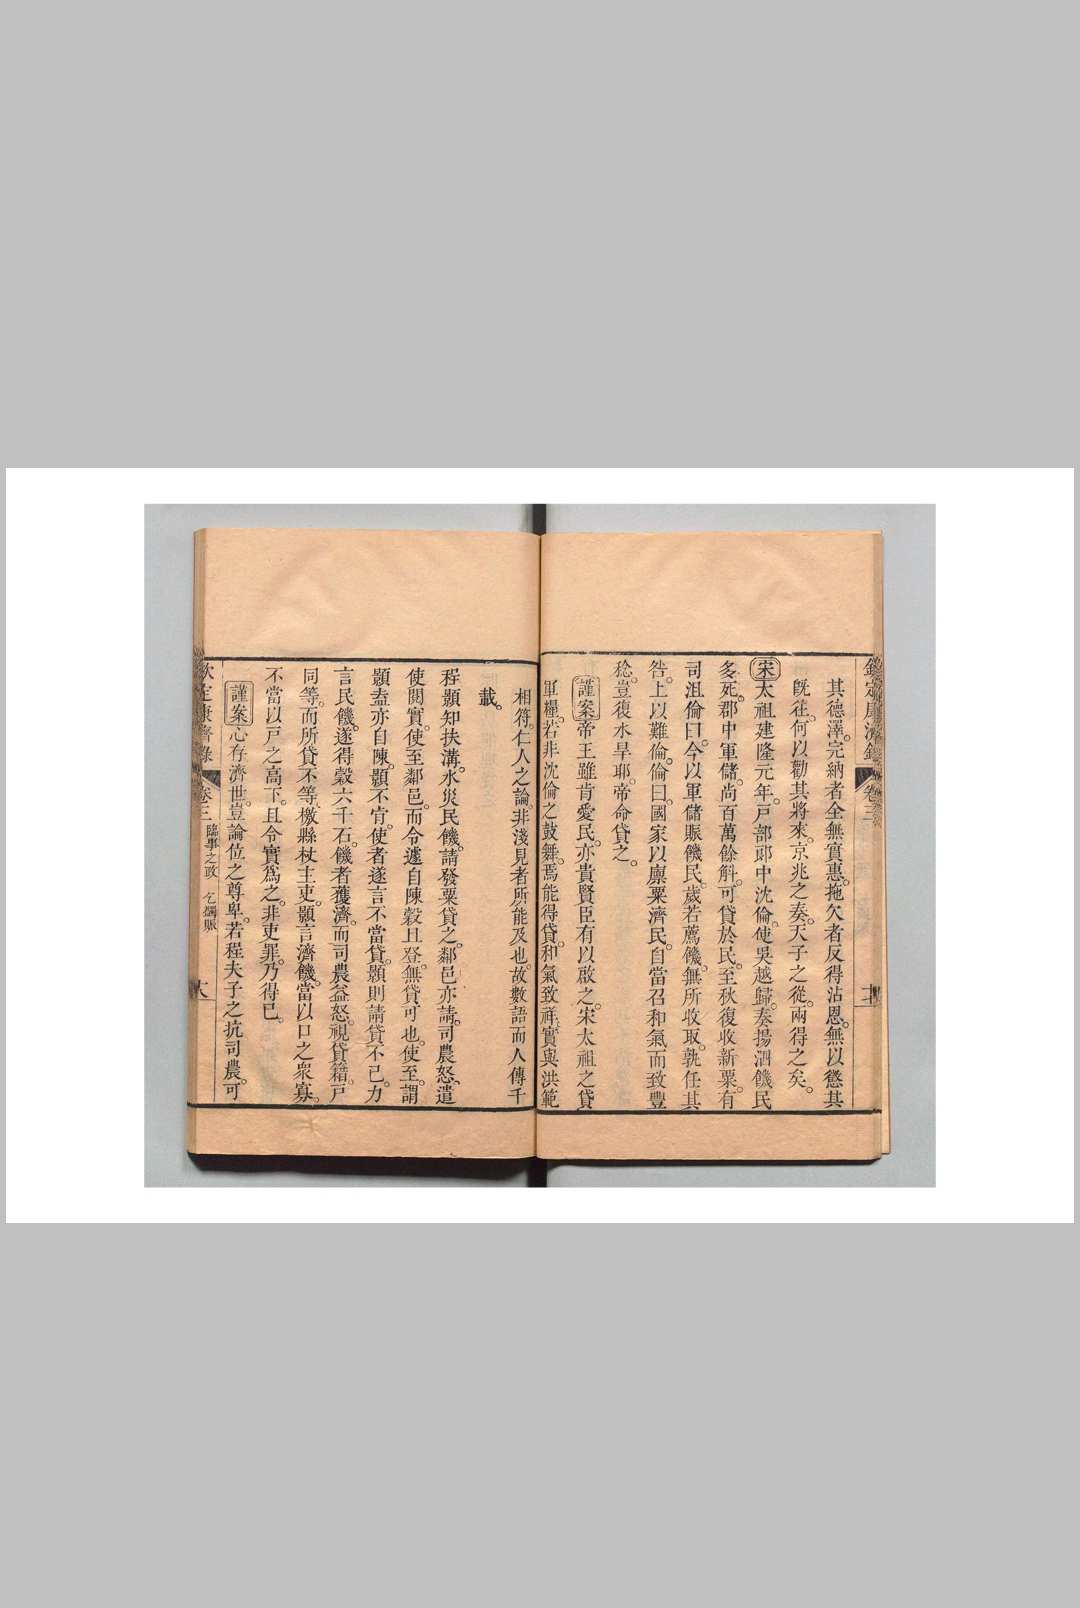 欽定康濟錄 卷三
其德澤。完納者全無實惠。拖欠者反得沾恩。無以懲其
旣往。何以勸其將來。京兆之奏。天子之從。兩得之矣。
宋太祖建隆元年。戸部郎中沈倫。使吳越歸。奏揚泗饑民
多死。郡中軍儲。尚百萬餘斛。可貸於民。至秋復收新粟。有
司沮倫曰。今以軍儲賑饑民。歲若薦饑。無所收取。孰任其
咎。上以難倫。倫曰。國家以廩粟濟民。自當召和氣而致豐
稔。豈復水旱耶。帝命貸之。
謹案帝王雖肯愛民。亦貴賢臣有以啟之。宋太祖之貸
軍糧。若非沈倫之鼓舞。焉能得貸。和氣致祥。實與洪範
相符。仁人之論。非淺見者所能及也。故數語而人傳千
載。
程顥知扶溝。水災民饑。請發粟貸之。鄰邑亦請。司農怒。遣
使閱實。使至鄰邑。而令遽自陳穀且登。無貸可也。使至。謂
顥盍亦自陳。顥不肯。使者遂言不當貸。顥則請貸不已。力
言民饑。遂得穀六千石。饑者獲濟。而司農益怒。視貸籍。戸
同等。而所貸不等。檄縣杖主吏。顥言濟饑。當以口之衆寡。
不當以戸之高下。且令實爲之。非吏罪。乃得已。
謹案心存濟世。豈論位之尊卑。若程夫子之抗司農。可
欽定康濟錄 卷三 臨事之政 乞蠲賑